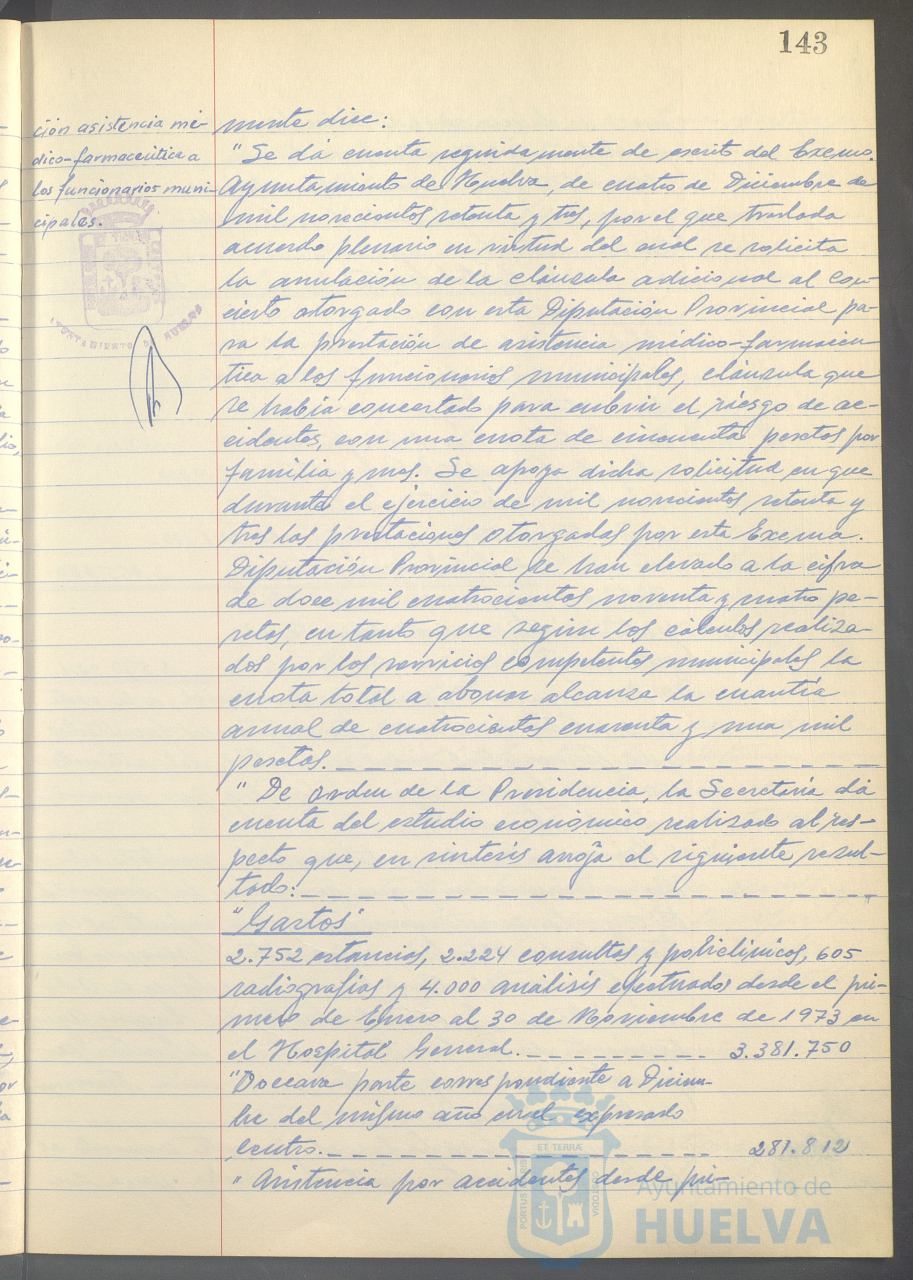 143
ción asistencia mé-
dico-farmacéutica a
los funcionarios muni-
cipales.
mente dice:
"Se dá cuenta seguidamente de escrito del Excmo.
Ayuntamiento de Huelva, de cuatro de Diciembre de
mil novecientos setenta y tres, por el que traslada
acuerdo plenario en virtud del cual se solicita
la anulación de la cláusula adicional al con-
cierto otorgado con esta Diputación Provincial pa-
ra la prestación de asistencia médico-farmacéu
tica a los funcionarios municipales, cláusula que
se había concertado para cubrir el riesgo de ac-
cidentes, con una cuota de cincuenta pesetas por
familia y mes. Se apoya dicha solicitud en que
durante el ejercicio de mil novecientos setenta y
tres las prestaciones otorgadas por esta Excma.
Diputación Provincial se han elevado a la cifra
de doce mil cuatrocientas noventa y cuatro pe-
setas, en tanto que según los cálculos realiza-
dos por los servicios competentes municipales la
cuota total a abonar alcanza la cuantía
anual de cuatrocientas cuarenta y una mil
pesetas.
" De orden de la Presidencia, la Secretaría dá
cuenta del estudio económico realizado al res-
pecto que, en síntesis arroja el siguiente resul-
tado:
"Gastos"
2.752 estancias, 2.224 consultas y policlínicas, 605
radiografías y 4.000 análisis efectuados desde el pri-
mero de Enero al 30 de Noviembre de 1973 en
el Hospital General. 3.381.750
"Doceava parte correspondiente a Diciem-
bre del mismo año en el expresado
centro. 281.812
" Asistencia por accidentes desde pri-
AYUNTAMIENTO DE HUELVA
PORTUS MARIS
ET TERRÆ
CUSTODIA
Ayuntamiento de
HUELVA